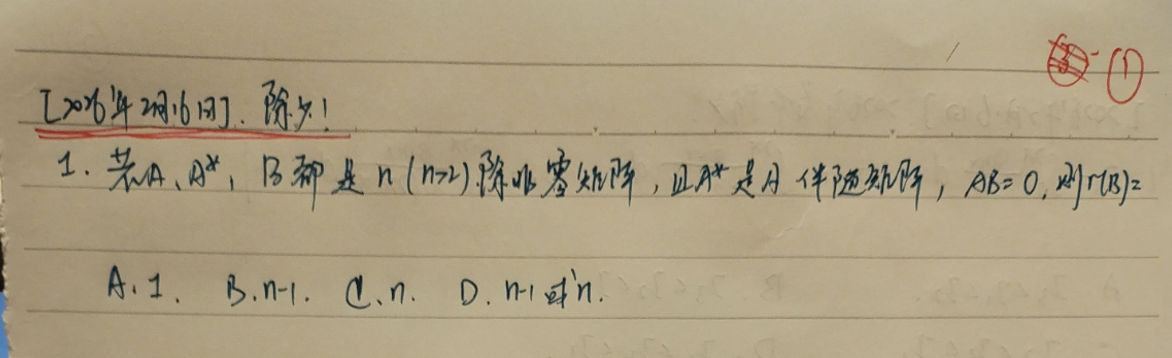 ①
[2026年2月16日]. 除夕!
1. 若A、A*, B都是n(n>2)阶非零矩阵,且A*是A伴随矩阵, AB=0, 则r(B)=
A. 1. B. n-1. C. n. D. n-1或n.